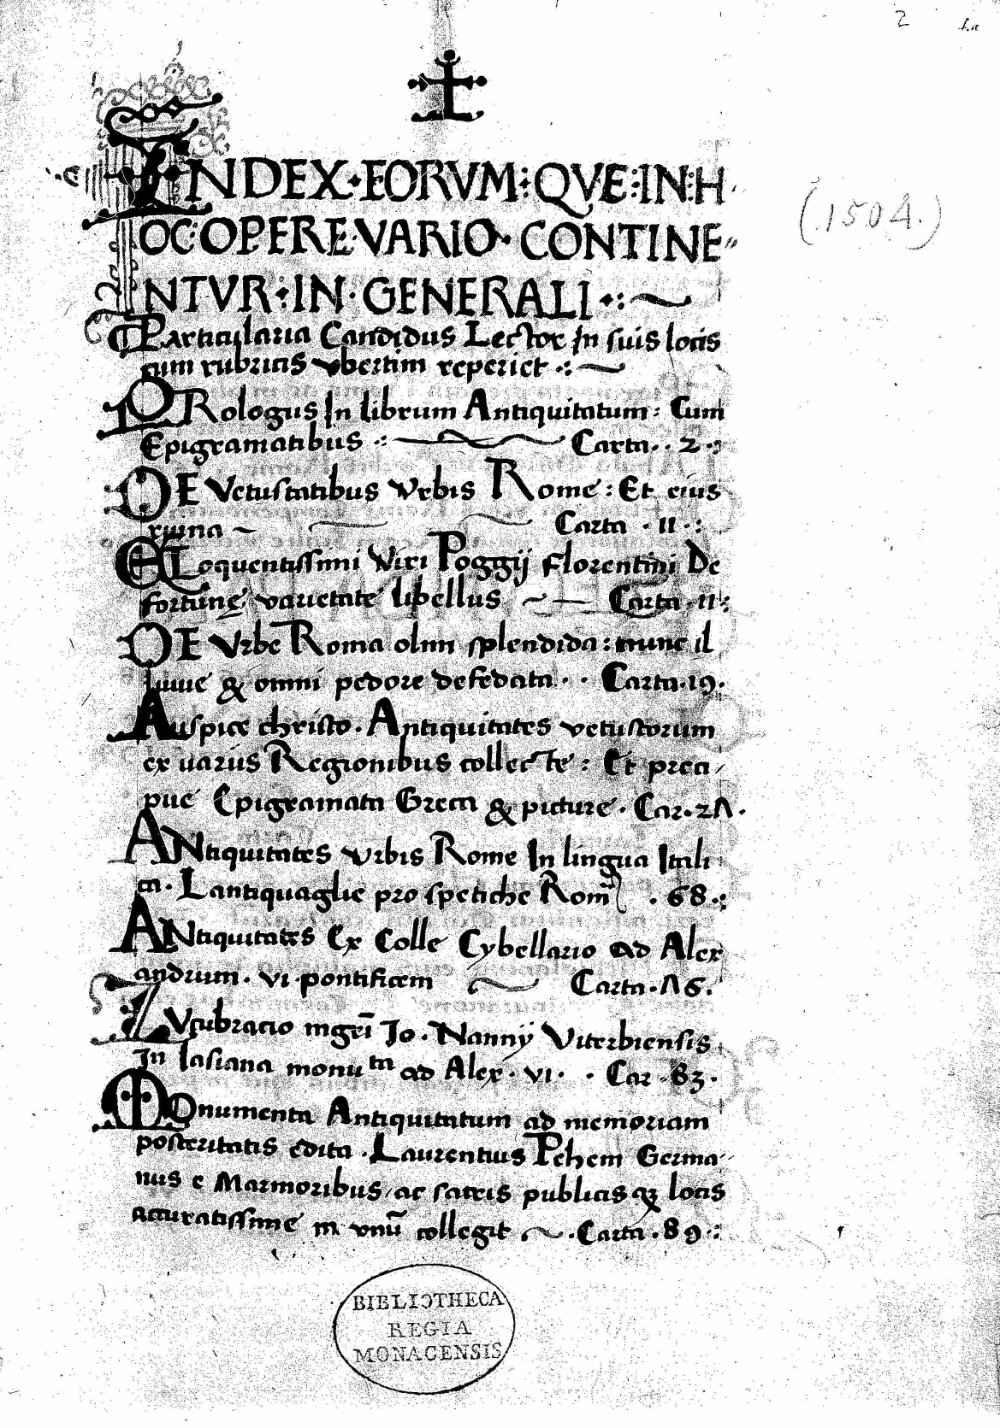 2
INDEX·EORVM:QVE:IN:H
OC:OPERE·VARIO·CONTINE=
NTVR:IN·GENERALI·:~
Particularia Candidus Lector In suis locis
cum rubricis vbertim reperiet·:~
PRologus In librum Antiquitatum: Cum
Epigramatibus·: Carta··2·:
DE Vetustatibus Vrbis Rome: Et eius
ruina ~ Carta·11·:
ELoquentissimi Viri Poggij Florentini De
fortune varietate libellus ~ Carta·11:
DE Vrbe Roma olim splendida: nunc il
luuie & omni pedore defedata·· Carta·19·
Auspice christo·Antiquitates vetustorum
ex uariis Regionibus collecte: Et preci/
pue Epigramata Greca & picture·Car·2Λ·
ANtiquitates Vrbis Rome In lingua Itali
ca·Lantiquaglie pro spetiche Rom̃ ·68·:
ANtiquitates Ex Colle Cybellario ad Alex
andrum·VI·pontificem Carta·Λ6·
LVcubracio mgrĩ Jo·Nannij Viterbiensis
In Iasiana monuᵗᵃ ad Alex·VI·· Car·83·
MOnumenta Antiquitatum ad memoriam
posteritatis edita·Laurentius Pehem Germa-
nus e Marmoribus/ac saxis publicis qȝ locis
accuratissime in vnũ collegit ~·Carta·89·:
(1504.)
BIBLIOTHECA
REGIA
MONACENSIS